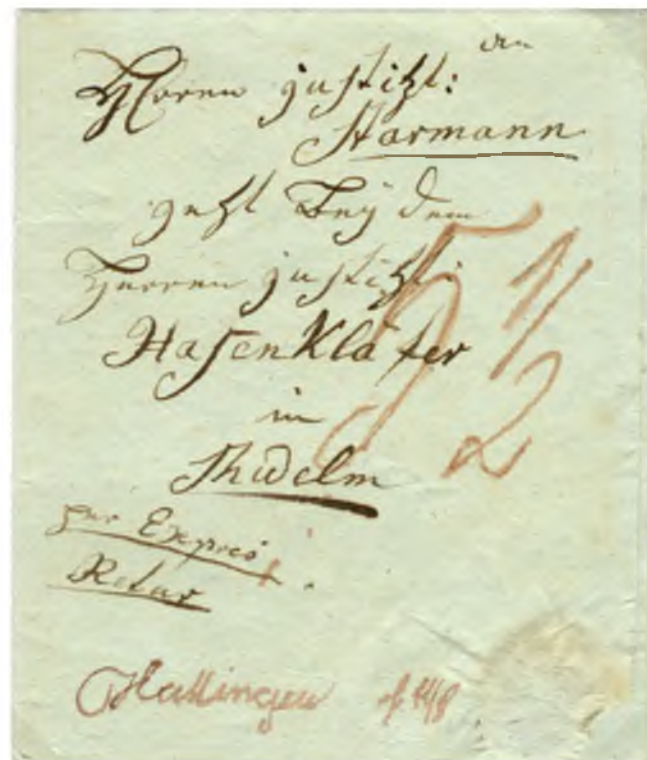 An
Herren justizk:
Harmann
jetzt bey dem
Herren justizk:
Hasenkläfer
in
5 1/2
per Expres
Retur
Hattingen